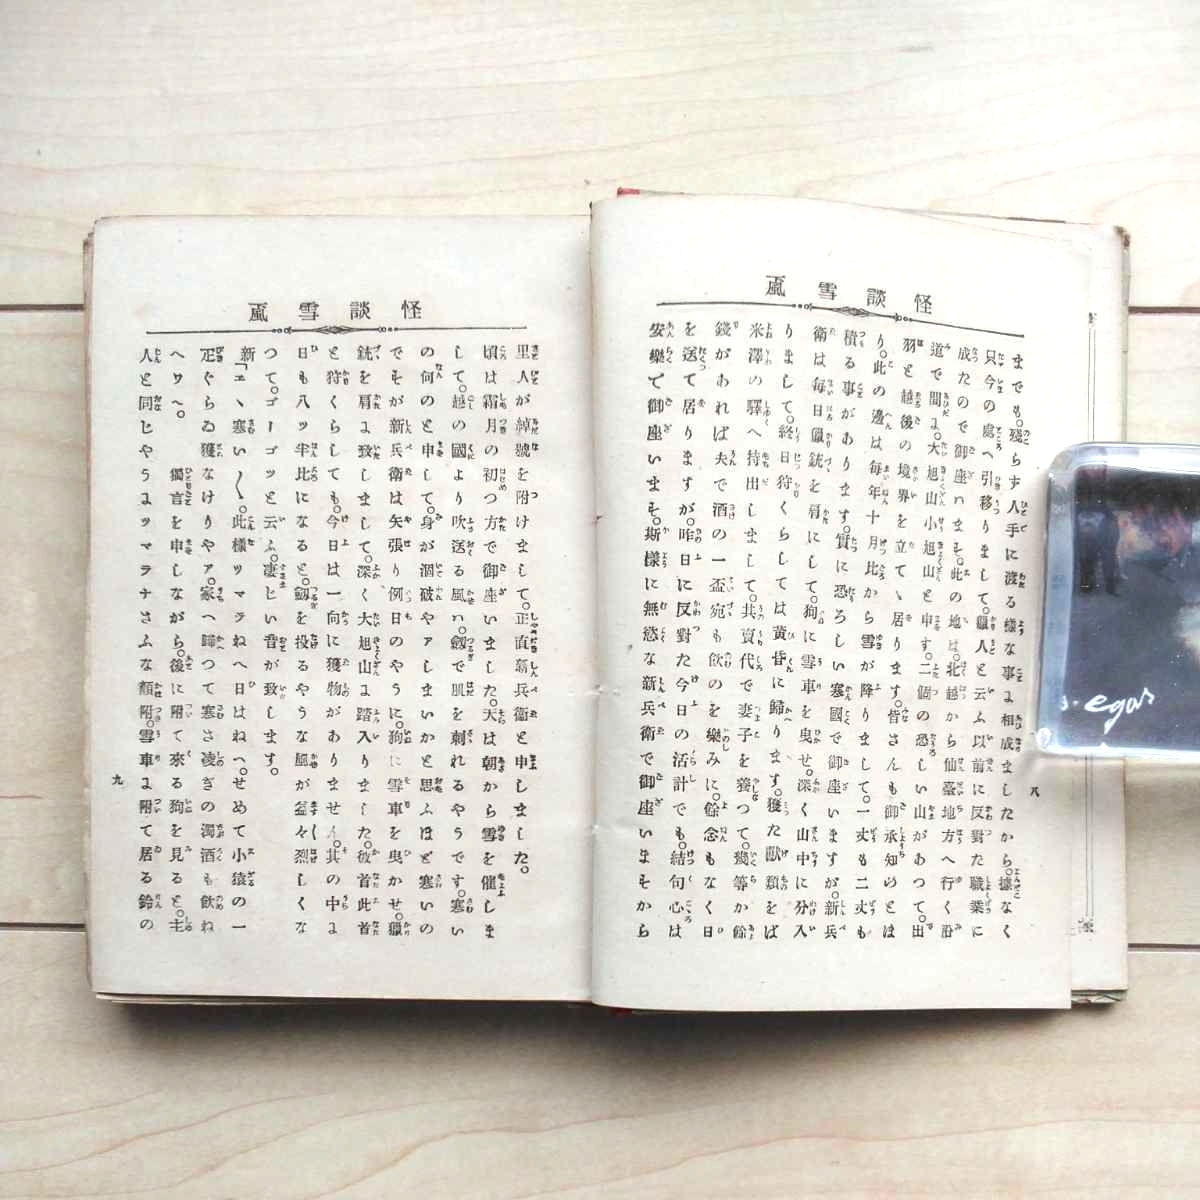 怪談雪颪
までも。殘らず人手に渡る樣な事よ相成ましたから。據なく
只今の處へ引移りまして。獵人と云ふ以前に反對た職業に
成たのでで御座いまそ。此の地は。北越から仙臺地方へ行く沿
道で間よ。大旭山小旭山と申す。二個の恐ろしい山があつて。出
羽と越後の境界を立てゝ居ります。皆さんも御承知のとほ
り。此の邊は毎年十月比から雪が降りまして。一丈も二丈も
積る事があります。實に恐ろしい寒國で御座いますが。新兵
衛は毎日獵銃を肩にして。狗に雪車を曳せ。深く山中に分入
りまして。終日狩くらしては黄昏に歸ります。獲た獸類をば
米澤の驛へ持出しまして。其賣代で妻子を養つて。幾等か餘
錢があれば夫で酒の一盃宛も飮のを樂みに。餘念もなく日
を送て居りますが。昨日に反對た今日の活計でも。結句心は
安樂で御座いまそ。斯樣に無慾な新兵衛で御座いまそから
八
怪談雪颪
里人が綽號を附けまして。正直新兵衛と申しました。
頃は霜月の初つ方で御座いました。天は朝から雪を催しま
して。越の國より吹送る風ハ。劔で肌を刺れるやうです。寒い
の何のと申して。身が涸破やァしまいかと思ふほど寒いの
でそが新兵衛は矢張り例日のやうに。狗に雪車を曳かせ。獵
銃を肩よ致しまして。深く大旭山よ踏入りました。彼首此首
と狩くらしても。今日は一向に獲物がありません。其の中よ
日も八ッ半比になると。劔を投るやうな風が益々烈しくな
つて。ゴーゴッと云ふ。凄じい音が致します。
新「エヽ寒い〱。此樣ッマラねへ日はねへ。せめて小猿の一
疋ぐらゐ獲なけりやァ。家へ歸つて寒さ凌ぎの濁酒も飮ね
へワヘ。獨言を申しながら。後に附て來る狗を見ると。主
人と同じやうよッマラナさふな顏附。雪車よ附て居る鈴の
九
egas